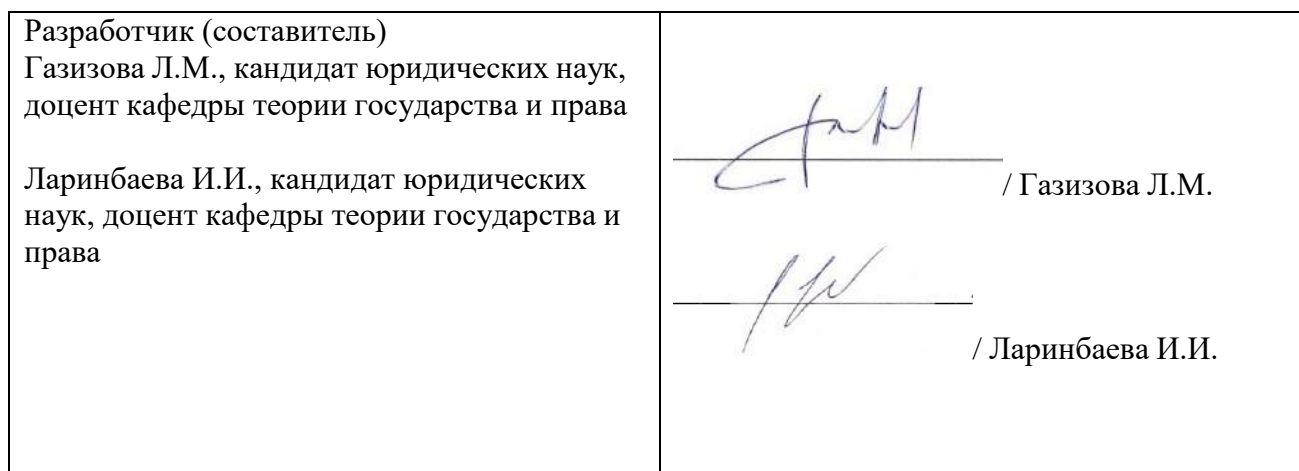 Разработчик (составитель)
Газизова Л.М., кандидат юридических наук,
доцент кафедры теории государства и права
Ларинбаева И.И., кандидат юридических
наук, доцент кафедры теории государства и
права
/ Газизова Л.М.
/ Ларинбаева И.И.